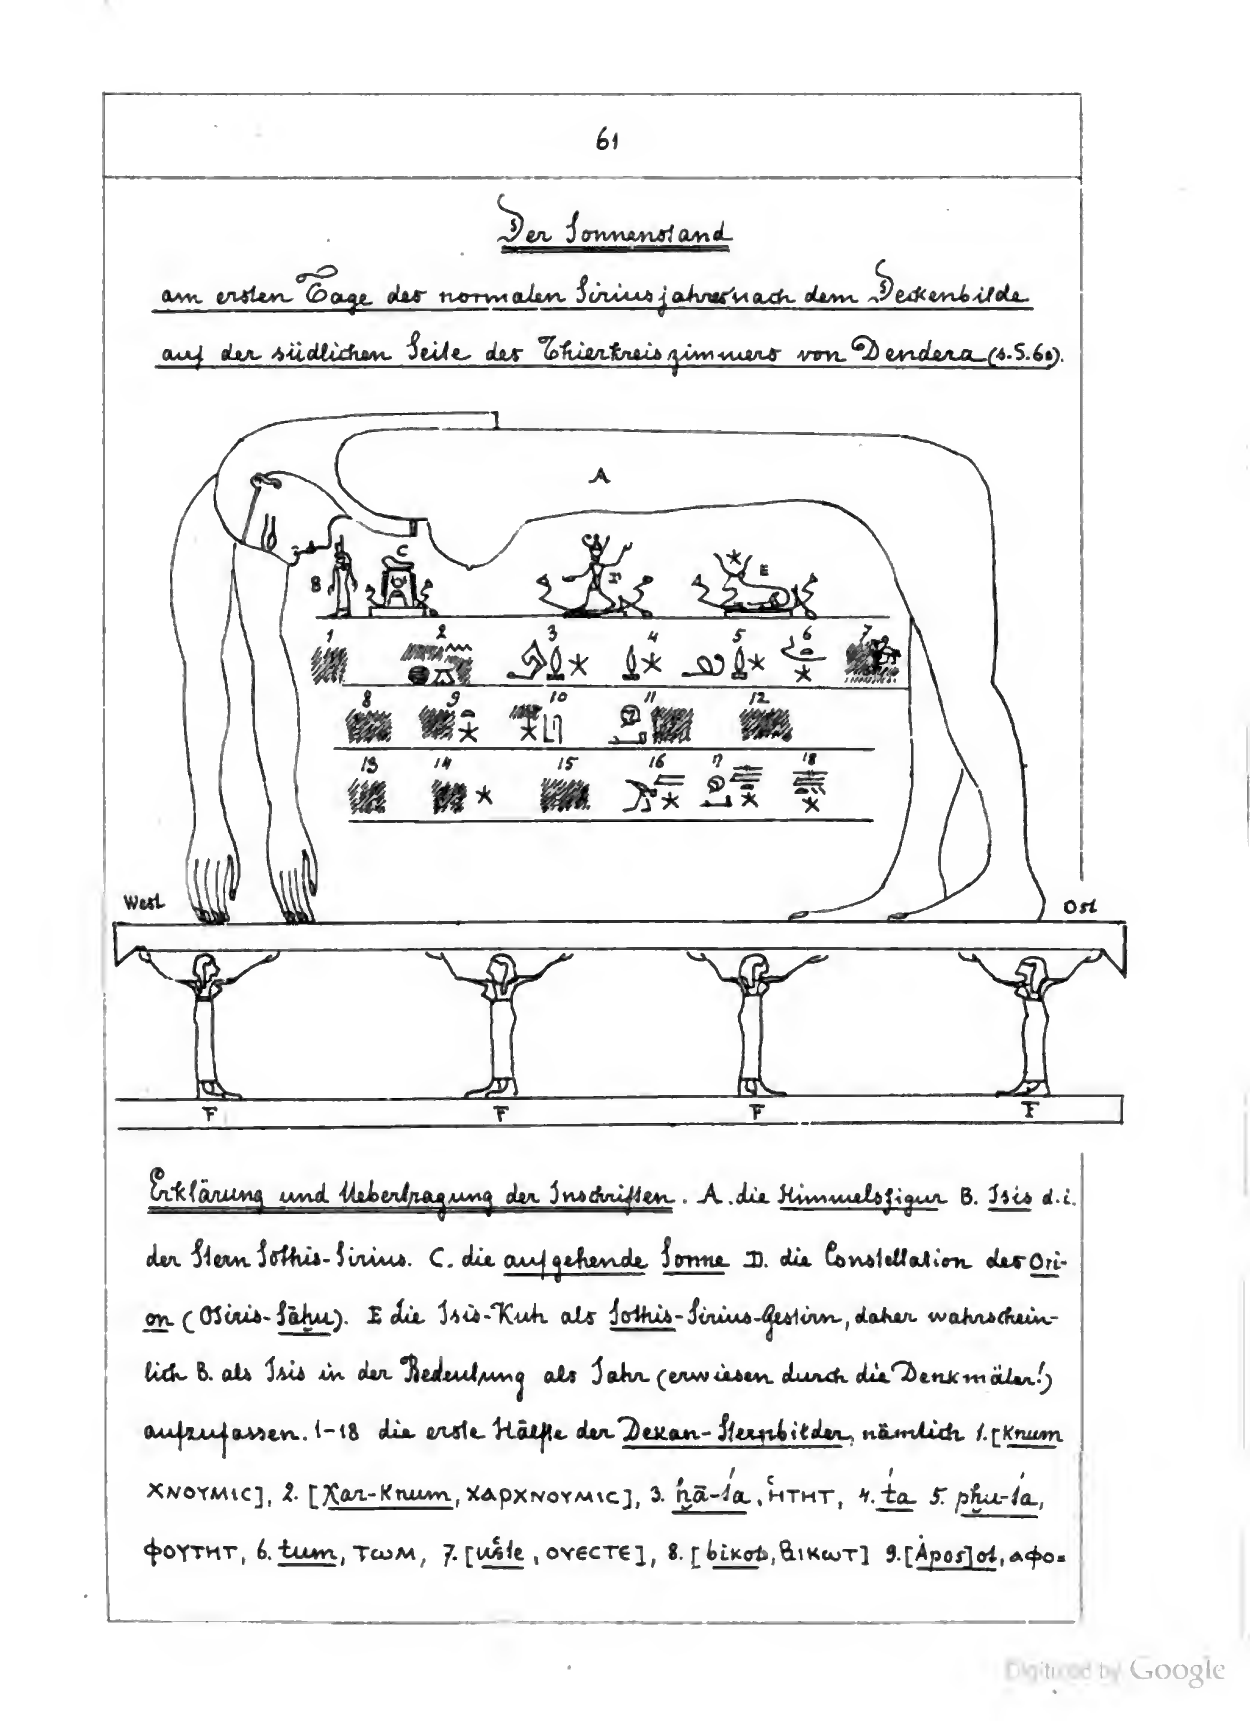 61
Der Sonnenstand
am ersten Tage des normalen Siriusjahres nach dem Deckenbilde
auf der südlichen Seite des Thierkreiszimmers von Dendera (s. S. 60).
A
B
C
D
E
1 2 3 4 5 6 7
8 9 10 11 12
13 14 15 16 17 18
West
Ost
F F F F
Erklärung und Uebertragung der Inschriften. A. die Himmelsfigur B. Isis d. i.
der Stern Sothis-Sirius. C. die aufgehende Sonne D. die Constellation des Ori-
on (Osiris-Sāḥu). E die Isis-Kuh als Sothis-Sirius-Gestirn, daher wahrschein-
lich B. als Isis in der Bedeutung als Jahr (erwiesen durch die Denkmäler!)
aufzufassen. 1-18 die erste Hälfte der Dekan-Sternbilder, nämlich 1. [Knum
ΧΝΟΥΜΙC], 2. [Χar-Knum, ΧΑΡΧΝΟΥΜΙC], 3. ḥā-ťa, ἩΤΗΤ, 4. ťa 5. pḥu-ťa,
ΦΟΥΤΗΤ, 6. tum, ΤΩΜ, 7. [uśte, ΟΥΕCΤΕ], 8. [bikot, ΒΙΚΩΤ] 9. [Apos]ot, ΑΦΟ=
Digitized by Google